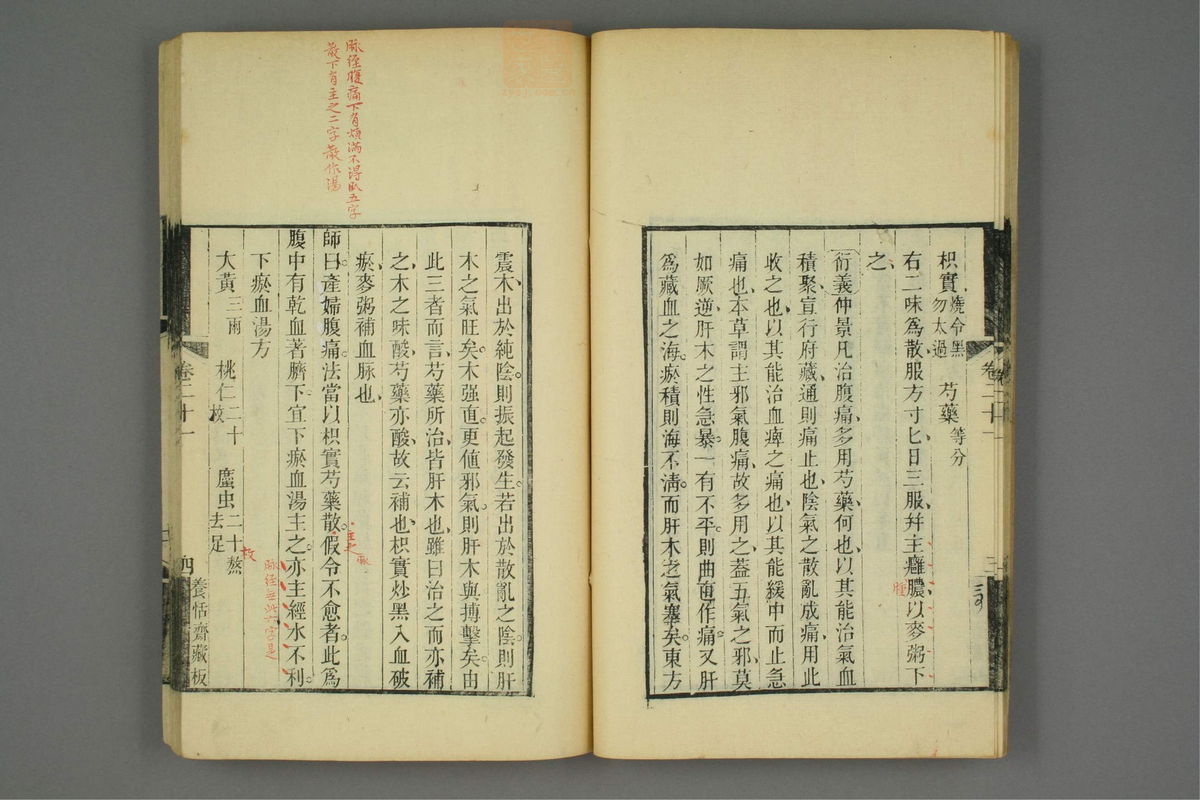 枳實燒令黑勿太過 芍藥等分
右二味為散服方寸匕日三服并主癰膿以麥粥下
之
衍義仲景凡治腹痛多用芍藥何也以其能治氣血
積聚宣行府藏通則痛止也陰氣之散亂成痛用此
收之也以其能治血痺之痛也以其能緩中而止急
痛也本草謂主邪氣腹痛故多用之葢五氣之邪莫
如厥逆肝木之性急暴一有不平則曲直作痛又肝
為藏血之海瘀積則海不清而肝木之氣塞矣東方
卷二十一
三
脉徑腹痛下有煩滿不得臥五字
散下有主之二字散作湯
震木出於純陰則振起發生若出於散亂之陰則肝
木之氣旺矣木强直更値邪氣則肝木與搏擊矣由
此三者而言芍藥所治皆肝木也雖曰治之而亦補
之木之味酸芍藥亦酸故云補也枳實炒黑入血破
瘀麥粥補血脉也
師曰產婦腹痛法當以枳實芍藥散假令不愈者此為
主之
腹中有乾血著臍下宜下瘀血湯主之亦主經水不利
脉徑無此六字是
下瘀血湯方
大黃三兩 桃仁二十枚 䗪虫二十熬去足
枚
卷二十一
四
養恬齋藏板